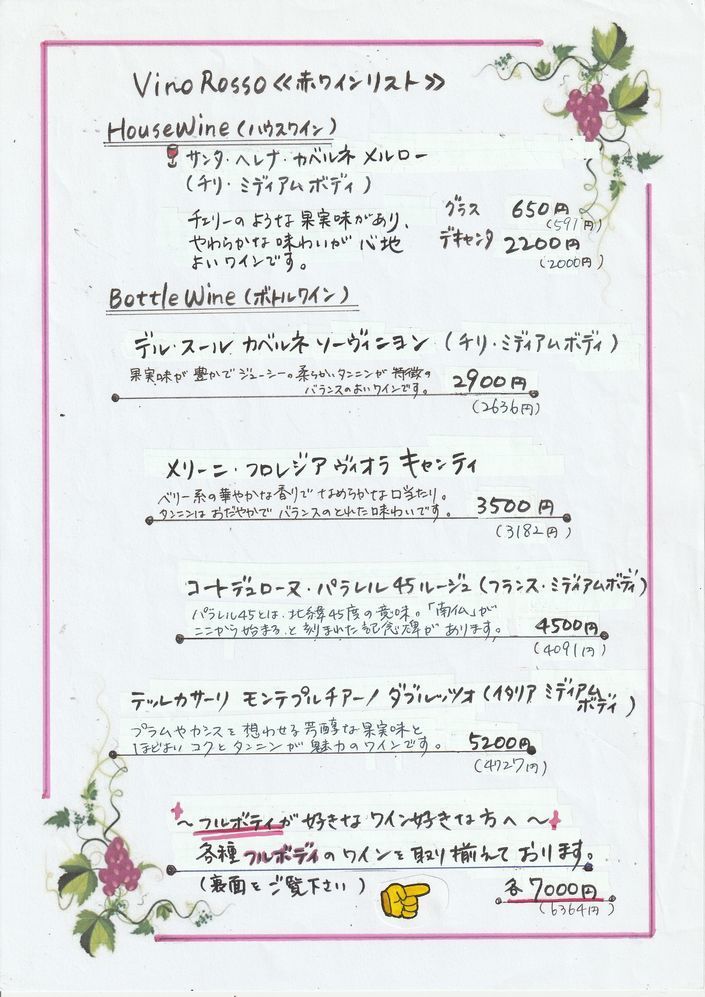 Vino Rosso 《赤ワインリスト》
House Wine (ハウスワイン)
サンタ・ヘレナ・カベルネ メルロー
(チリ・ミディアムボディ)
チェリーのような果実味があり、
やわらかな味わいが心地
よいワインです。
グラス 650円
(591円)
デキャンタ 2200円
(2000円)
Bottle Wine (ボトルワイン)
デル・スール カベルネ ソーヴィニヨン (チリ・ミディアムボディ)
果実味が豊かでジューシー。柔らかいタンニンが特徴の
バランスのよいワインです。
2900円
(2636円)
メリーニ・フロレジア ヴィオラ キャンティ
ベリー系の華やかな香りでなめらかな口当たり。
タンニンはおだやかでバランスのとれた味わいです。
3500円
(3182円)
コートデュローヌ・パラレル45ルージュ (フランス・ミディアムボディ)
パラレル45とは、北緯45度の意味。「南仏」が
ここから始まると刻まれた記念碑があります。
4500円
(4091円)
テッルカサーリ モンテプルチアーノ ダブルッツオ (イタリア ミディアム
ボディ)
プラムやカシスを想わせる芳醇な果実味と
ほどよいコクとタンニンが魅力のワインです。
5200円
(4727円)
〜フルボディが好きなワイン好きな方へ〜
各種フルボディのワインを取り揃えております。
(裏面をご覧下さい)
各7000円
(6364円)